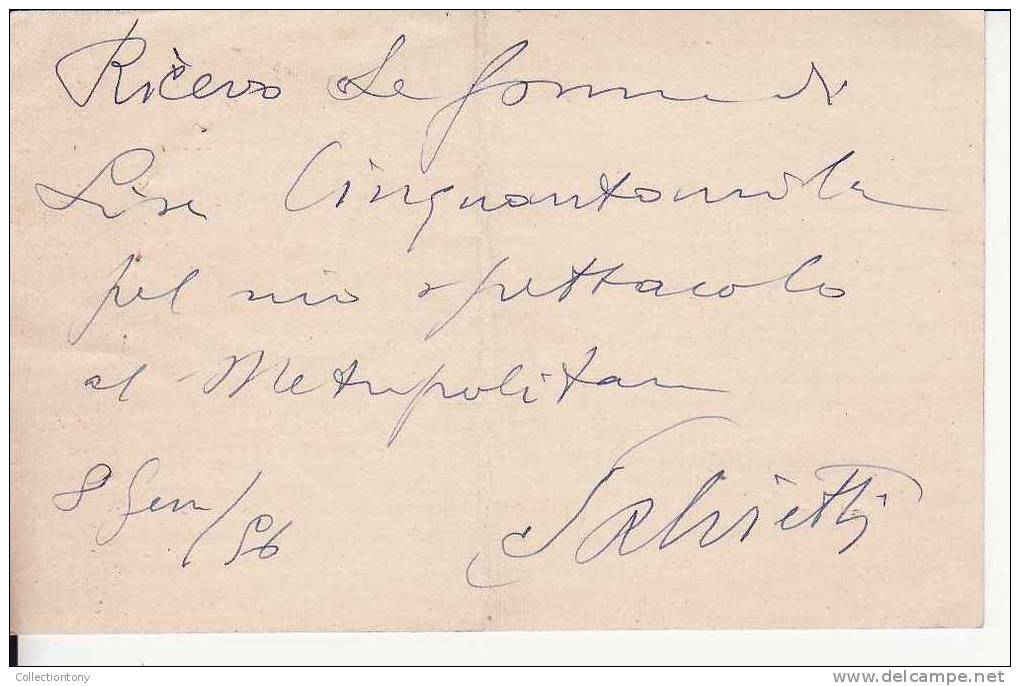 Ricevo le somme di
Lire Cinquantamila
pel mio spettacolo
al Metropolitan
8 Gen/56
Salvietti
Collectiontony
www.delcampe.net